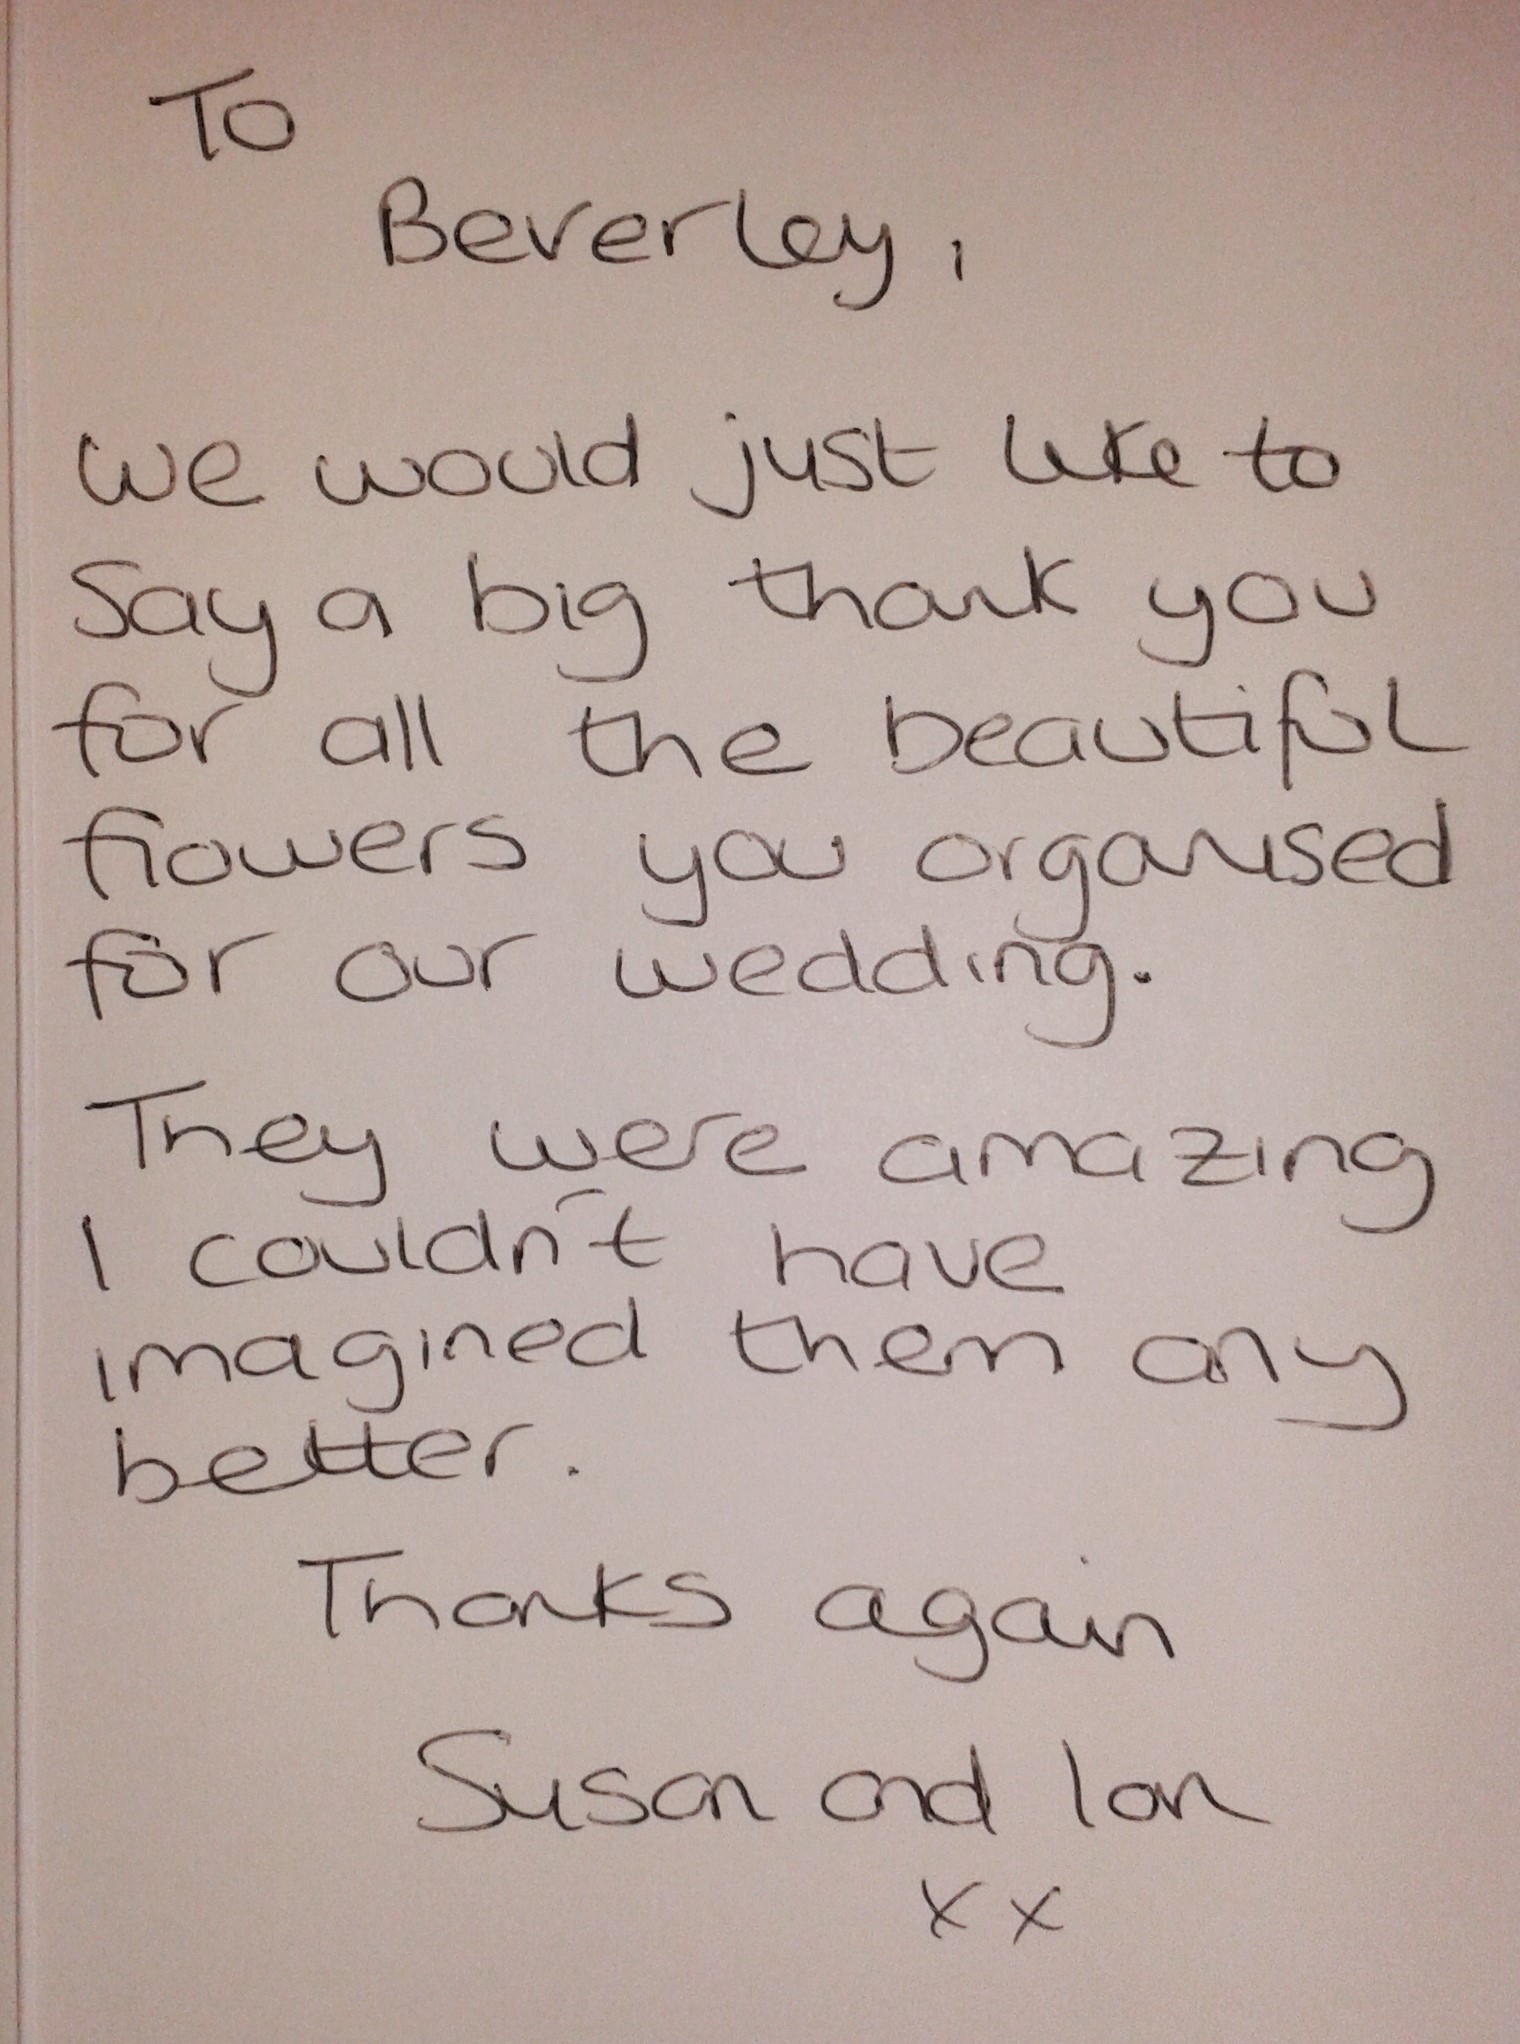 To
Beverley,
We would just like to
Say a big thank you
for all the beautiful
flowers you organised
for our wedding.
They were amazing
I couldn't have
imagined them any
better.
Thanks again
Susan and Ian
xx